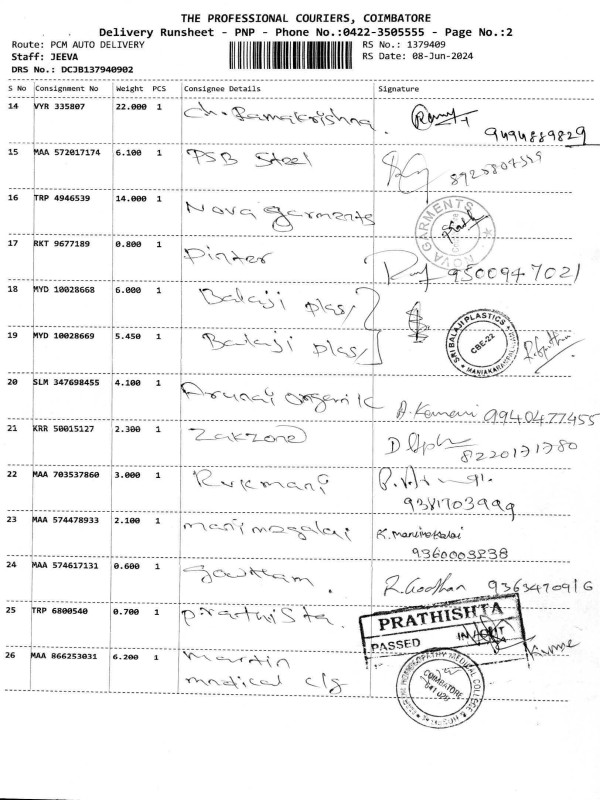 THE PROFESSIONAL COURIERS, COIMBATORE
Delivery Runsheet - PNP - Phone No.:0422-3505555 - Page No.:2
Route: PCM AUTO DELIVERY RS No.: 1379409
Staff: JEEVA RS Date: 08-Jun-2024
DRS No.: DCJB137940902
S No Consignment No Weight PCS Consignee Details Signature
14 VYR 335807 22.000 1 Ch. Ramakrishna.
9494889829
15 MAA 572017174 6.100 1 PSB Steel
16 TRP 4946539 14.000 1 Nova garments
NOVA GARMENTS
17 RKT 9677189 0.800 1 Pinter
9500947021
18 MYD 10028668 6.000 1 Balaji plas/
19 MYD 10028669 5.450 1 Balaji plas/
SRI BALAJI PLASTICS
CBE-22
20 SLM 347698455 4.100 1 Arunai organik
A. Kamani 9940477455
21 KRR 50015127 2.300 1 Zakzone
8220171780
22 MAA 703537860 3.000 1 Rukmani
9381703999
23 MAA 574478933 2.100 1 manimegalai K. Manimekalai
9360003238
24 MAA 574617131 0.600 1 Gowtham.
9363470916
25 TRP 6800540 0.700 1 Prathista
PRATHISHTA
PASSED
26 MAA 866253031 6.200 1 Martin
medical clg
COIMBATORE